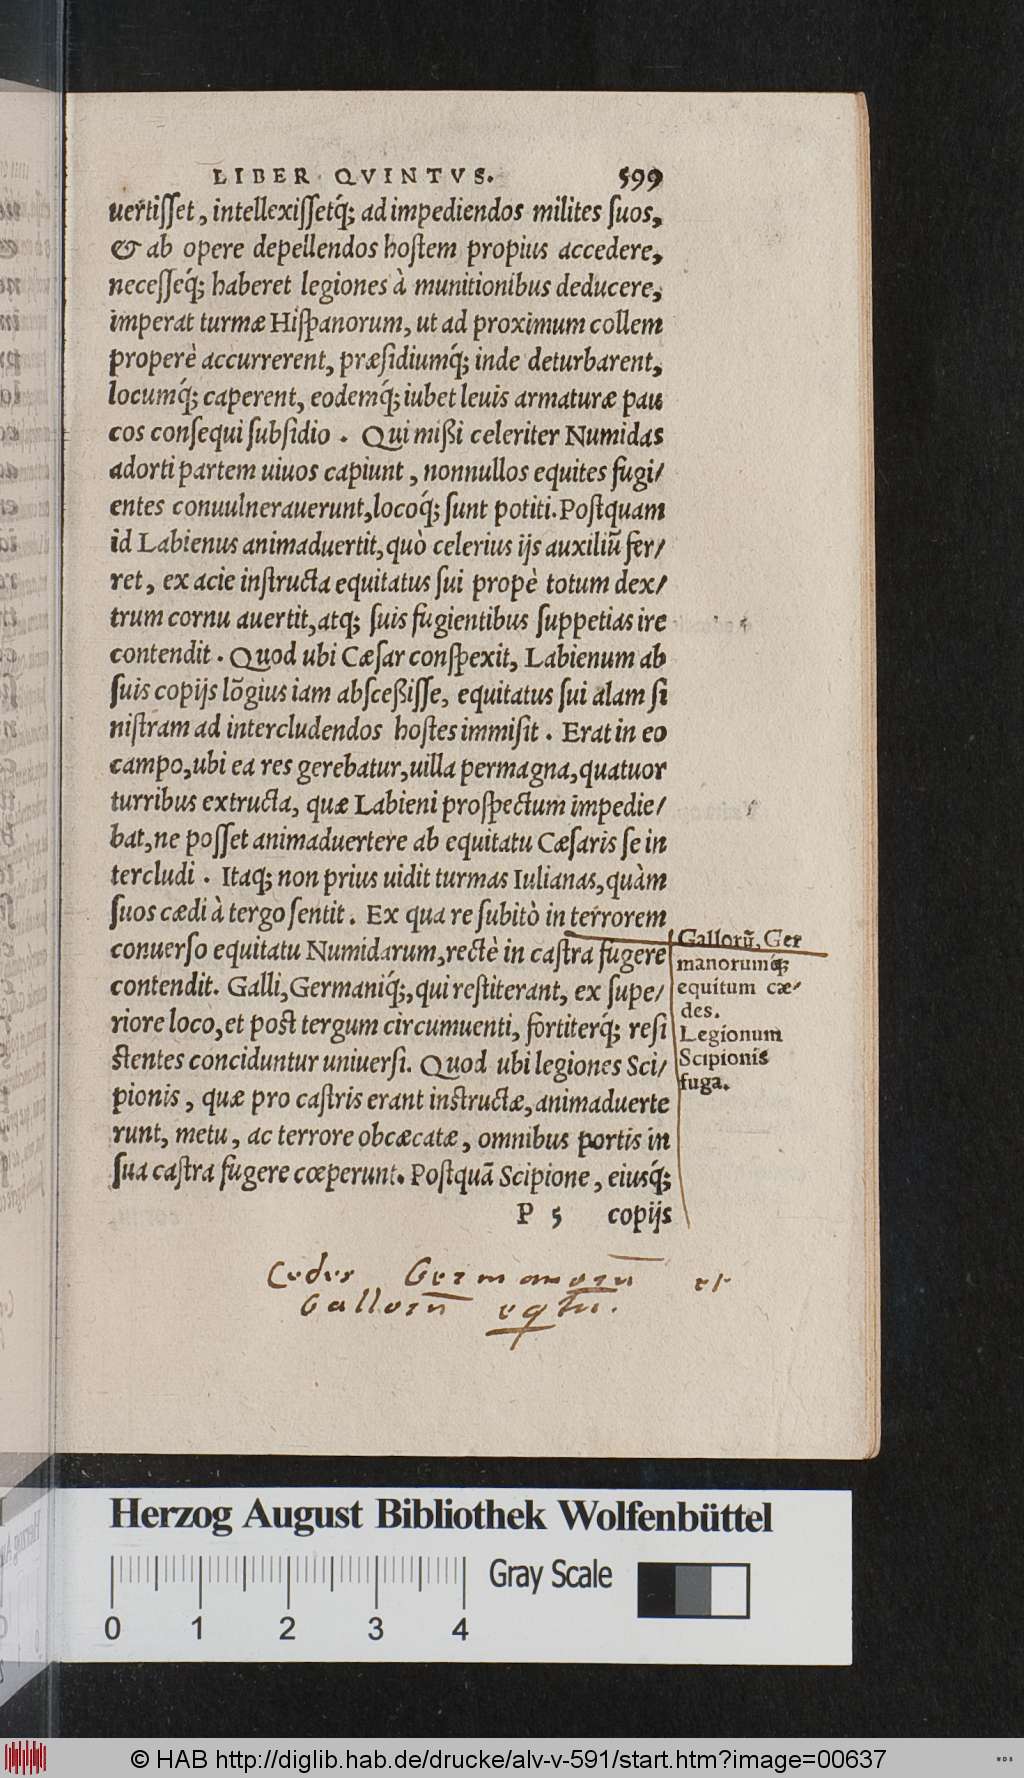 LIBER QVINTVS. 599
uertiſſet, intellexiſſetq́; ad impediendos milites ſuos,
& ab opere depellendos hoſtem propius accedere,
neceſſeq́; haberet legiones à munitionibus deducere,
imperat turmæ Hiſpanorum, ut ad proximum collem
properè accurrerent, præſidiumq́; inde deturbarent,
locumq́; caperent, eodemq́; iubet leuis armaturæ pau
cos conſequi ſubſidio. Qui mißi celeriter Numidas
adorti partem uiuos capiunt, nonnullos equites fugi/
entes conuulnerauerunt, locoq́; ſunt potiti. Poſtquam
id Labienus animaduertit, quò celerius ijs auxiliũ fer/
ret, ex acie inſtructa equitatus ſui propè totum dex/
trum cornu auertit, atq; ſuis fugientibus ſuppetias ire
contendit. Quod ubi Cæſar conſpexit, Labienum ab
ſuis copijs lõgius iam abſceßiſſe, equitatus ſui alam ſi
niſtram ad intercludendos hoſtes immiſit. Erat in eo
campo, ubi ea res gerebatur, uilla permagna, quatuor
turribus extructa, quæ Labieni proſpectum impedie/
bat, ne poſſet animaduertere ab equitatu Cæſaris ſe in
tercludi. Itaq; non prius uidit turmas Iulianas, quàm
ſuos cædi à tergo ſentit. Ex qua re ſubitò in terrorem
conuerſo equitatu Numidarum, rectè in caſtra fugere
contendit. Galli, Germaniq́;, qui reſtiterant, ex ſupe/
riore loco, et poſt tergum circumuenti, fortiterq́; reſi
ſtentes conciduntur uniuerſi. Quod ubi legiones Sci/
pionis, quæ pro caſtris erant inſtructæ, animaduerte
runt, metu, ac terrore obcæcatæ, omnibus portis in
ſua caſtra fugere cœperunt. Poſtquã Scipione, eiusq́;
P 5 copijs
Gallorũ, Ger
manorumq́;
equitum cæ-
des.
Legionum
Scipionis
fuga.
Cedes Germanorū et
Gallorū eqtū.
Herzog August Bibliothek Wolfenbüttel
Gray Scale
0 1 2 3 4
© HAB http://diglib.hab.de/drucke/alv-v-591/start.htm?image=00637